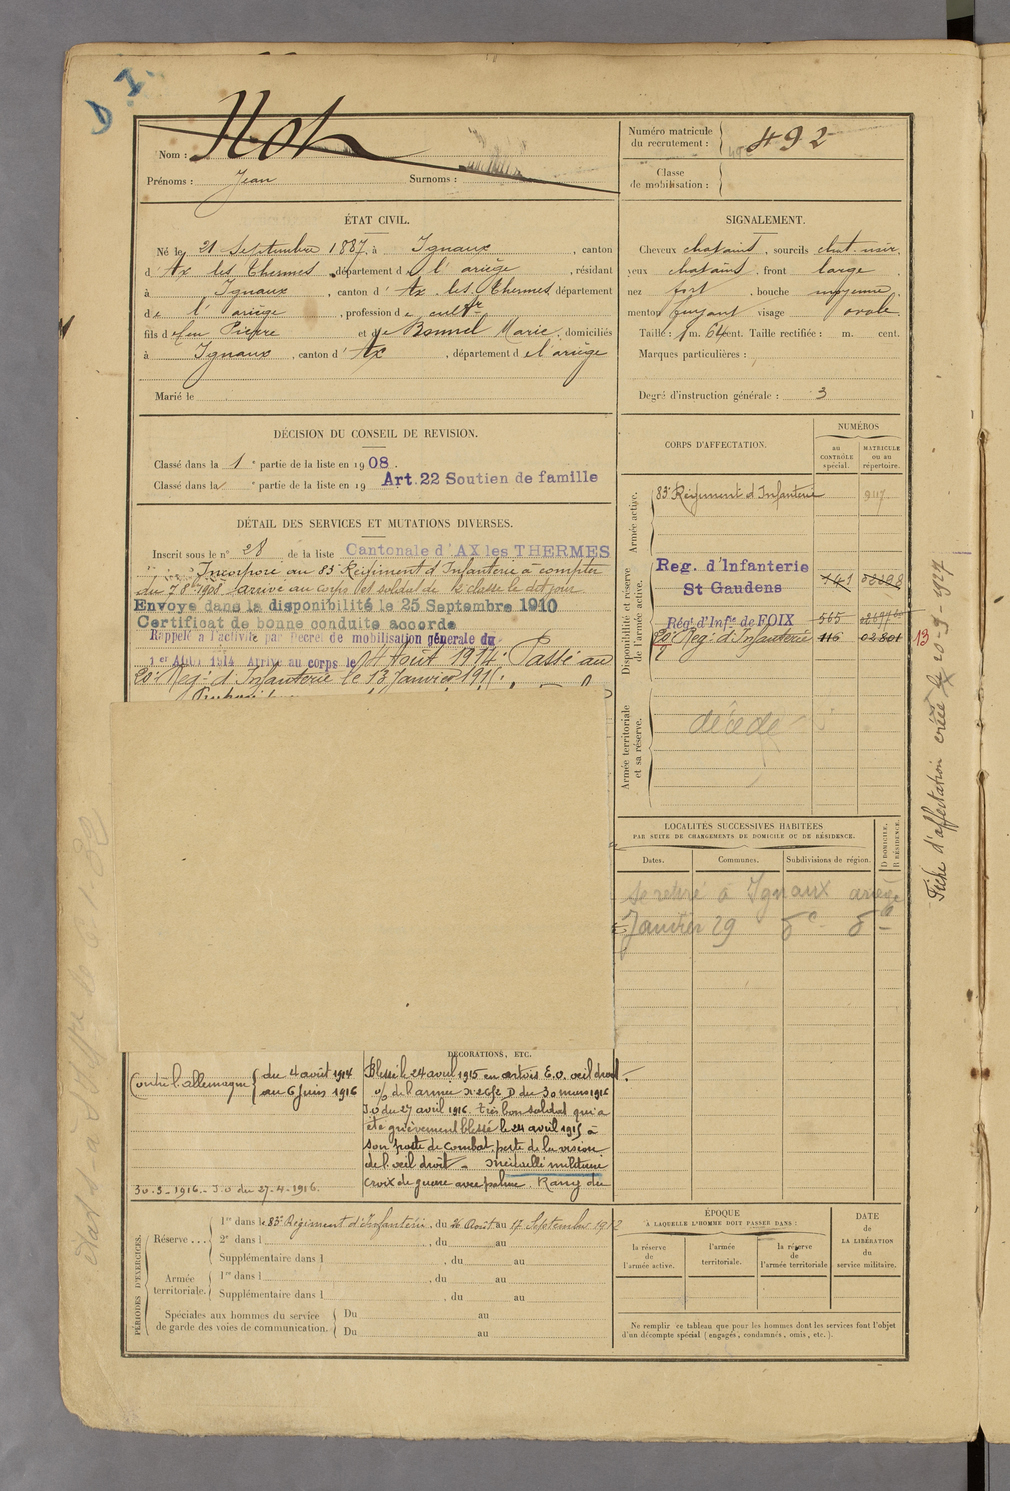 Nom : Not
Prénoms : Jean Surnoms :
Numéro matricule du recrutement : 492
Classe de mobilisation :
ÉTAT CIVIL.
Né le 21 Septembre 1887, à Ignaux, canton
d'Ax les Thermes, département de l'ariège, résidant
à Ignaux, canton d'Ax les Thermes département
de l'ariège, profession de cultr
fils de feu Pierre et de Bonnel Marie, domiciliés
à Ignaux, canton d'Ax, département de l'ariège
Marié le
SIGNALEMENT.
Cheveux chatains, sourcils chat. noir,
yeux chatains, front large,
nez fort, bouche moyenne,
menton fuyant visage ovale.
Taille : 1 m. 64 cent. Taille rectifiée : m. cent.
Marques particulières :
Degré d'instruction générale : 3
DÉCISION DU CONSEIL DE REVISION.
Classé dans la 1e partie de la liste en 1908.
Classé dans la e partie de la liste en 19 Art. 22 Soutien de famille
DÉTAIL DES SERVICES ET MUTATIONS DIVERSES.
Inscrit sous le n° 28 de la liste Cantonale d'AX les THERMES
Incorporé au 83e Régiment d'Infanterie à compter
du 7 8bre 1908 arrivé au corps soldat de 2e classe le dit jour
Envoyé dans la disponibilité le 25 Septembre 1910
Certificat de bonne conduite accordé
Rappelé à l'activité par Décret de mobilisation générale du
1er Août 1914 Arrivé au corps le 4 Août 1914. Passé au
Rég. d'Infanterie le 13 Janvier
CORPS D'AFFECTATION.
NUMÉROS
au CONTRÔLE spécial.
MATRICULE ou au répertoire.
Armée active.
83e Régiment d'Infanterie
Disponibilité et réserve de l'armée active.
Reg. d'Infanterie
St Gaudens
Rég. d'Infie de FOIX 565
Reg. d'Infanterie 116 02801
13
Armée territoriale et sa réserve.
décédé
Fiche d'affectation créée le 20-9-1927
LOCALITÉS SUCCESSIVES HABITÉES
PAR SUITE DE CHANGEMENTS DE DOMICILE OU DE RÉSIDENCE.
Dates. Communes. Subdivisions de région. D DOMICILE. R RÉSIDENCE.
se retiré à Ignaux ariège
Janvier 29
DÉCORATIONS, ETC.
Contre l'allemagne { du 4 août 1914
au 6 Juin 1916
Blessé le 24 avril 1915 en artois E.O. œil droit.
de l'armée D du 30 mars 1916
J.O du 27 avril 1916. très bon soldat qui a
été grièvement blessé le 24 avril 1915 à
son poste de combat, perte de la vision
de l'œil droit - médaille militaire
croix de guerre avec palme. Rang du
30-3-1916. - J.O du 27-4-1916.
PÉRIODES D'EXERCICES.
Réserve
1re dans le 83e Régiment d'Infanterie, du 26 Août au 17 Septembre 1912
2e dans l , du au
Supplémentaire dans l , du au
Armée territoriale.
1re dans l , du au
Supplémentaire dans l , du au
Spéciales aux hommes du service de garde des voies de communication.
Du au
Du au
ÉPOQUE
À LAQUELLE L'HOMME DOIT PASSER DANS :
la réserve de l'armée active.
l'armée territoriale.
la réserve de l'armée territoriale
DATE de LA LIBÉRATION du service militaire.
Ne remplir ce tableau que pour les hommes dont les services font l'objet
d'un décompte spécial (engagés, condamnés, omis, etc.).